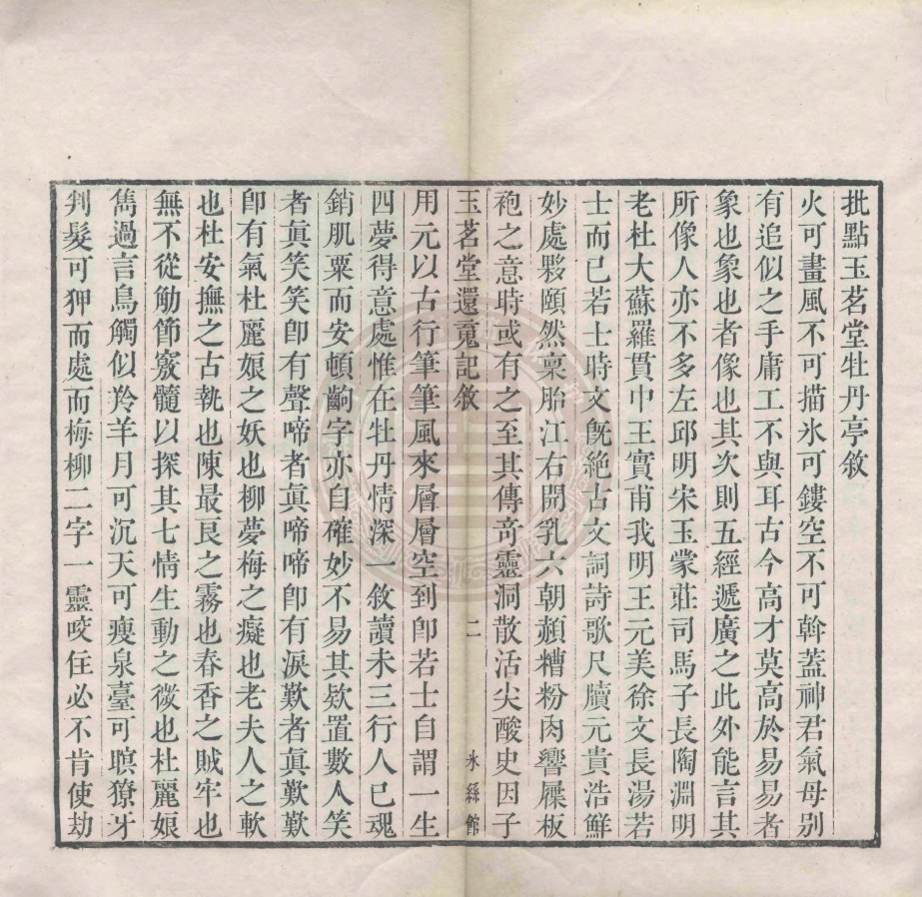 批點玉茗堂牡丹亭敘
火可畫風不可描氷可鏤空不可斡葢神君氣母別
有追似之手庸工不與耳古今高才莫高於易易者
象也象也者像也其次則五經遞廣之此外能言其
所像人亦不多左邱明宋玉蒙莊司馬子長陶淵明
老杜大蘇羅貫中王實甫我明王元美徐文長湯若
士而已若士時文旣絶古文詞詩歌尺牘元貴浩鮮
妙處夥頤然稟胎江右開乳六朝頳糟粉肉響屧板
袍之意時或有之至其傳奇靈洞散活尖酸史因子
玉茗堂還䰟記敘
二
氷絲館
用元以古行筆筆風來層層空到卽若士自謂一生
四夢得意處惟在牡丹情深一敘讀未三行人已魂
銷肌粟而安頓齣字亦自確妙不易其欵置數人笑
者眞笑笑卽有聲啼者眞啼啼卽有淚歎者眞歎歎
卽有氣杜麗娘之妖也柳夢梅之癡也老夫人之軟
也杜安撫之古執也陳最良之霧也春香之賊牢也
無不從觔節竅髓以探其七情生動之微也杜麗娘
雋過言鳥觸似羚羊月可沉天可瘦泉臺可瞑獠牙
判髮可狎而處而梅柳二字一靈咬住必不肯使劫